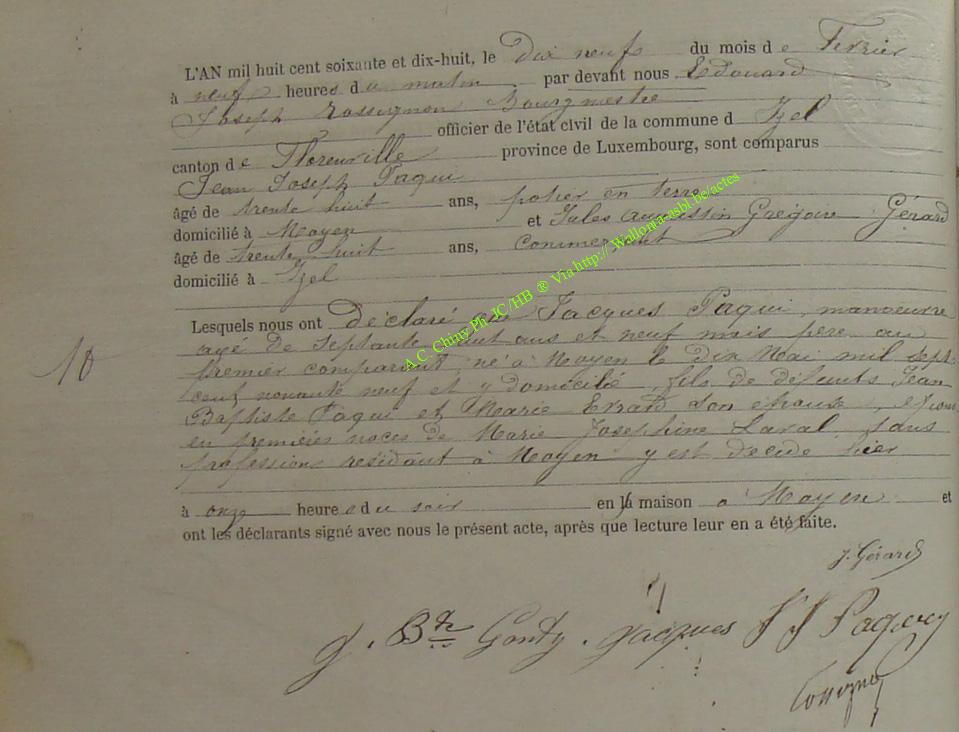 L'AN mil huit cent soixante et dix-huit, le Dix neuf du mois de Fevrier
à neuf heures du matin par devant nous Edouard
Joseph Rossignon Bourgmestre
officier de l'état civil de la commune d Izel
canton de Florenville province de Luxembourg, sont comparus
Jean Joseph Paqui
âgé de trente huit ans, potier en terre
domicilié à Moyen et Jules Augustin Grégoire Gérard
âgé de trente huit ans, commerçant
domicilié à Izel
Lesquels nous ont déclaré que Jacques Paqui, manoeuvre
agé de septante huit ans et neuf mois pere au
premier comparant, né à Moyen le dix Mai mil sept
cent nonante neuf et y domicilié, fils de défunts Jean
Baptiste Paqui et Marie Evrard son epouse, epoux
en premières noces de Marie Josephine Laval, sans
profession residant à Moyen y est decede hier
10
à onze heures du soir en la maison a Moyen et
ont les déclarants signé avec nous le présent acte, après que lecture leur en a été faite.
J. Gérard
J. Bte Jacques J J Paquy
A.C. Chiny Ph JC/HB ® Via http://Wallonia-asbl.be/actes